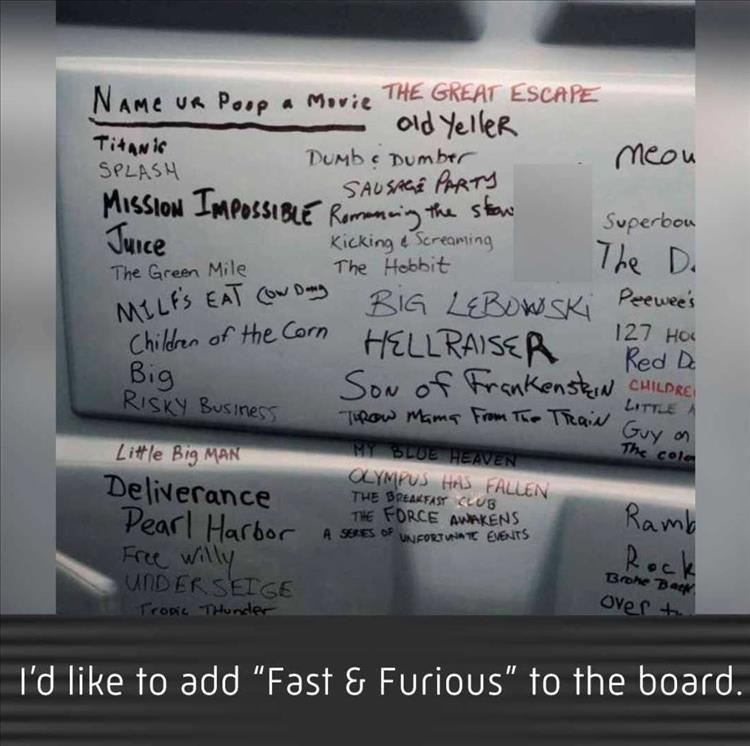 NAME UR Poop a Movie
THE GREAT ESCAPE
old Yeller
TiTANic
SPLASH
DUMB & DUMBer
SAUSAGE PARTY
Meow
MISSION IMPOSSIBLE
Romancing the
Superbow
Juice
Kicking & Screaming
The Green Mile
The Hobbit
The D
MILF'S EAT Cow Dung
BIG LEBOWSKi
Peewee's
Children of the Corn
HELLRAISER
127 HO
Red D
Big
SON of FrankenstEiN
CHILDRE
RISKY BUSINESS
THROW Mama From The TRaiN
LITTLE
Guy on
Little Big MAN
MY BLUE HEAVEN
The color
Deliverance
OLYMPUS HAS FALLEN
THE BREAKFAST CLUB
Pearl Harbor
THE FORCE AWAKENS
Ramb
A SERIES OF UNFORTUNATE EVENTS
Free Willy
Rock
UNDER SEIGE
Broke Back
Tropic THunder
over
I'd like to add "Fast & Furious" to the board.